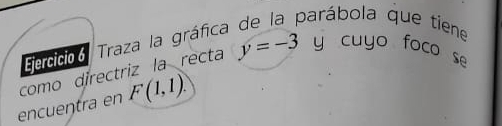 Ejercicio 6 Traza la gráfica de la parábola que tiene
como directriz la recta y = -3 y cuyo foco se
encuentra en F(1,1).